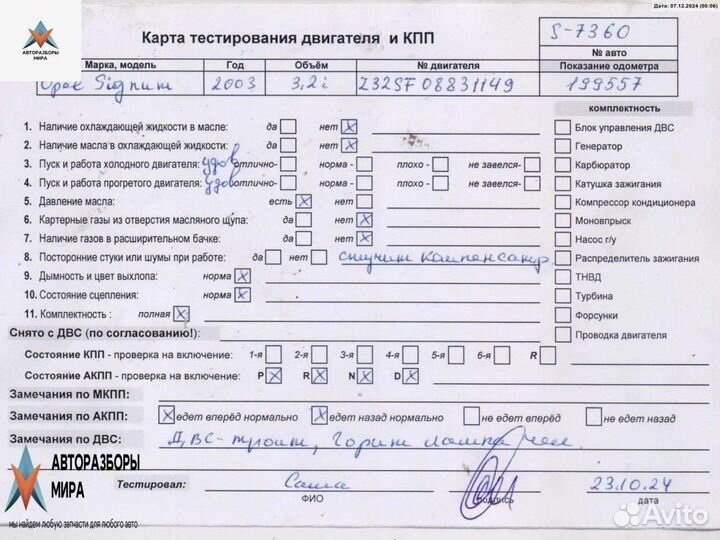 Дата: 07.12.2024 (00:06)
АВТОРАЗБОРЫ
МИРА
Карта тестирования двигателя и КПП
S-7360
№ авто
Марка, модель Год Объём № двигателя Показание одометра
Opel Signum 2003 3,2i Z32SF08831149 199557
комплектность
1. Наличие охлаждающей жидкости в масле: да нет X Блок управления ДВС
2. Наличие масла в охлаждающей жидкости: да нет X Генератор
3. Пуск и работа холодного двигателя: удов отлично- норма - плохо - не завелся- Карбюратор
4. Пуск и работа прогретого двигателя: удов отлично- норма - плохо - не завелся- Катушка зажигания
5. Давление масла: есть X нет Компрессор кондиционера
6. Картерные газы из отверстия масляного щупа: да нет X Моновпрыск
7. Наличие газов в расширительном бачке: да нет X Насос г/у
8. Посторонние стуки или шумы при работе: да нет стучит компенсатр Распределитель зажигания
9. Дымность и цвет выхлопа: норма X ТНВД
10. Состояние сцепления: норма X Турбина
11. Комплектность : полная X Форсунки
Снято с ДВС (по согласованию!): Проводка двигателя
Состояние КПП - проверка на включение: 1-я 2-я 3-я 4-я 5-я 6-я R
Состояние АКПП - проверка на включение: P X R X N X D X
Замечания по МКПП:
Замечания по АКПП: X едет вперёд нормально X едет назад нормально не едет вперёд не едет назад
Замечания по ДВС: ДВС-троит, горит лампа чек.
АВТОРАЗБОРЫ
МИРА
Тестировал: Саша 23.10.24
ФИО подпись дата
мы найдем любую запчасти для любого авто
Avito